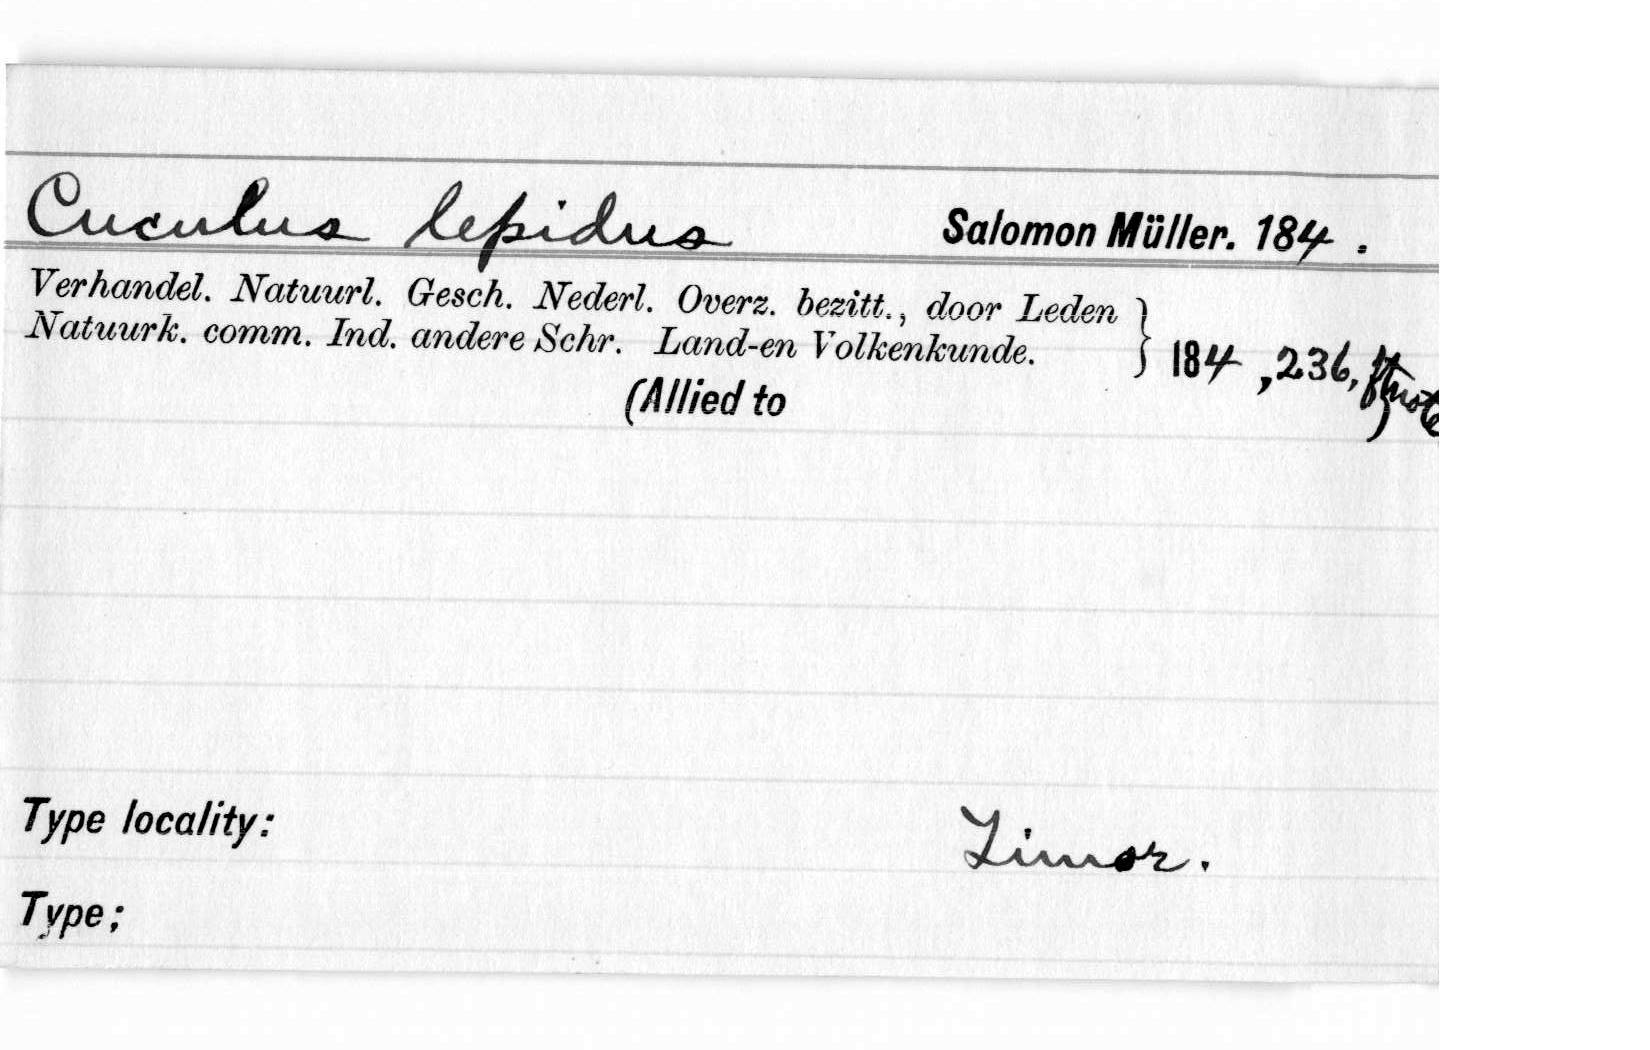 Cuculus lepidus Salomon Müller. 184 .
Verhandel. Natuurl. Gesch. Nederl. Overz. bezitt., door Leden
Natuurk. comm. Ind. andere Schr. Land-en Volkenkunde. } 184 , 236, ftnote
(Allied to )
Type locality: Timor.
Type;